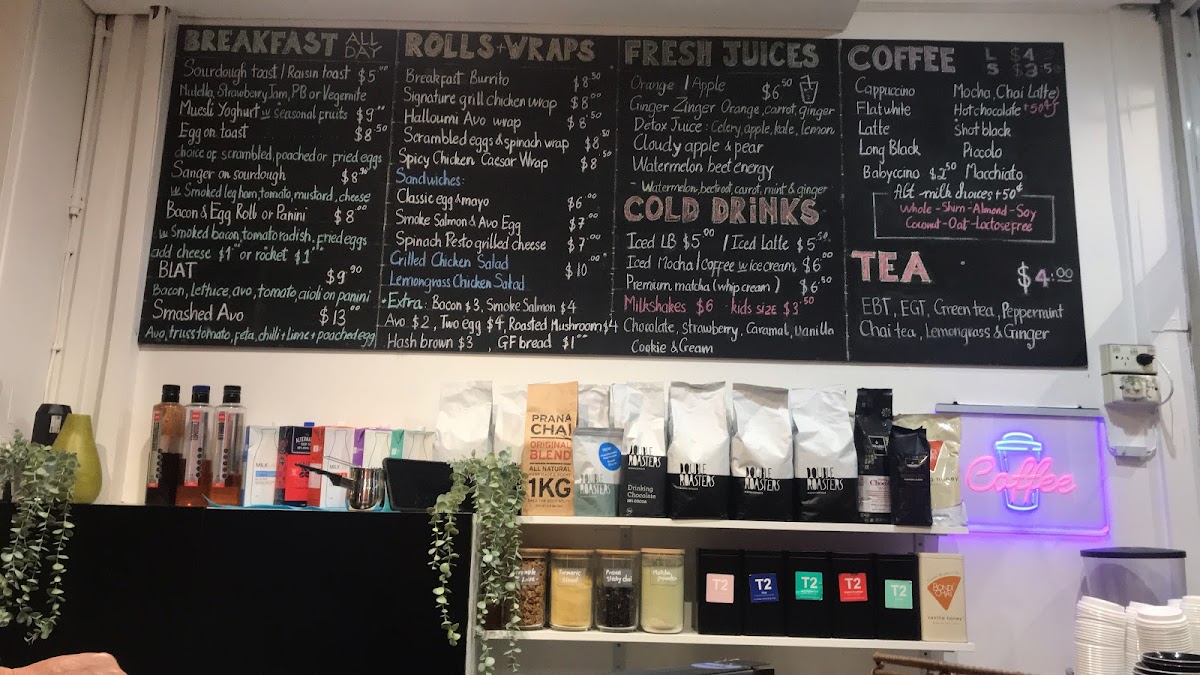 BREAKFAST ALL DAY
Sourdough toast / Raisin toast $5.00
Nutella, Strawberry Jam, PB or Vegemite
Muesli Yoghurt w seasonal fruits $9.00
Egg on toast $8.50
choice of scrambled, poached or fried eggs
Sanger on sourdough $8.50
w Smoked leg ham, tomato, mustard, cheese
Bacon & Egg Roll or Panini $8.00
w Smoked bacon, tomato radish, fried eggs
add cheese $1.00 or rocket $1.00
BLAT $9.90
Bacon, lettuce, avo, tomato, aioli on panini
Smashed Avo $13.00
Avo, truss tomato, feta, chilli + lime + poached egg
ROLLS + WRAPS
Breakfast Burrito $8.50
Signature grill chicken wrap $8.00
Halloumi Avo wrap $8.50
Scrambled eggs & spinach wrap $8.50
Spicy Chicken Caesar Wrap $8.50
Sandwiches:
Classic egg & mayo $6.00
Smoke Salmon & Avo Egg $7.00
Spinach Pesto grilled cheese $7.00
Grilled Chicken Salad $10.00
Lemongrass Chicken Salad
Extra: Bacon $3, Smoke Salmon $4
Avo $2, Two egg $4, Roasted Mushroom $4
Hash brown $3, GF bread $1.00
FRESH JUICES
Orange / Apple $6.50
Ginger Zinger Orange, carrot, ginger
Detox Juice: Celery, apple, kale, lemon
Cloudy apple & pear
Watermelon beet energy
- Watermelon, beetroot, carrot, mint & ginger
COLD DRINKS
Iced LB $5.00 / Iced Latte $5.50
Iced Mocha / Coffee w ice cream $6.00
Premium matcha (whip cream) $6.50
Milkshakes $6 · kids size $3.50
Chocolate, strawberry, Caramel, vanilla
Cookie & Cream
COFFEE L $4
S $3.50
Cappucino Mocha, Chai Latte)
Flat white Hot chocolate +50¢
Latte Shot black
Long Black Piccolo
Babyccino $2.50 Macchiato
Alt-milk choices +50¢
Whole - Skim - Almond - Soy
Coconut - Oat - Lactose free
TEA $4.00
EBT, EGT, Green tea, Peppermint
Chai tea, Lemongrass & Ginger
MILK
MILK
PRANA
CHAI
ORIGINAL
BLEND
ALL NATURAL
1KG
DOUBLE
ROASTERS
DOUBLE
ROASTERS
Drinking
Chocolate
DOUBLE
ROASTERS
DOUBLE
ROASTERS
DOUBLE
ROASTERS
Coffee
Turmeric
Prana
Sticky chai
Matcha
powder
T2
T2
T2
T2
T2
BONDI
CHAI
vanilla honey